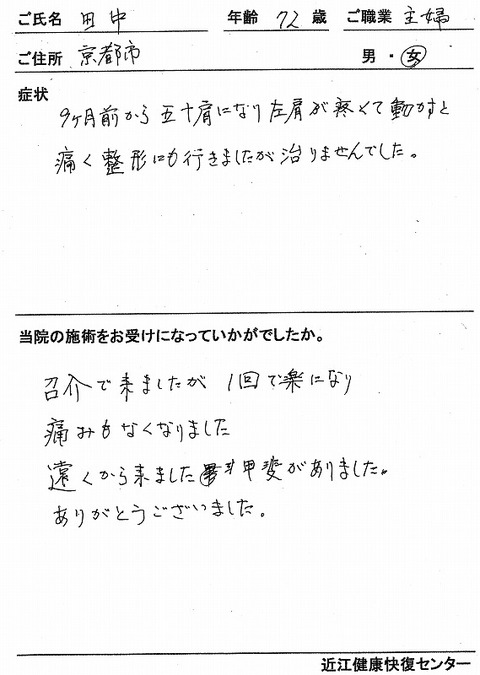 ご氏名 田中 年齢 72 歳 ご職業 主婦
ご住所 京都市 男・女
症状
9ヶ月前から五十肩になり左肩が疼くて動かすと
痛く整形にも行きましたが治りませんでした。
当院の施術をお受けになっていかがでしたか。
召介で来ましたが 1回で楽になり
痛みもなくなりました
遠くから来ました 甲斐がありました。
ありがとうございました。
近江健康快復センター